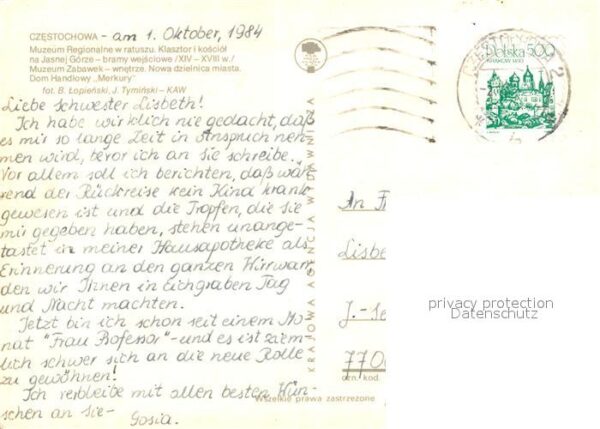 CZĘSTOCHOWA - am 1. Oktober, 1984
Muzeum Regionalne w ratuszu. Klasztor i kościół
na Jasnej Górze – bramy wejściowe /XIV – XVIII w./
Muzeum Zabawek – wnętrze. Nowa dzielnica miasta.
Dom Handlowy „Merkury”
fot. B. Łopieński, J. Tymiński – KAW
Liebe schwester Lisbeth!
Ich habe wirklich nie gedacht, daß
es mir so lange Zeit in Anspruch neh-
men wird, bevor ich an Sie schreibe.
Vor allem soll ich berichten, daß wäh-
rend der Rückreise kein Kind krank
gewesen ist und die Tropfen, die Sie
mir gegeben haben, stehen unange-
tastet in meiner Hausapotheke als
Erinnerung an den ganzen Wirrwarr
den wir Ihnen in Eichgraben Tag
und Nacht machten.
Jetzt bin ich schon seit einem Mo-
nat "Frau Professor" - und es ist ziem-
lich schwer sich an die neue Rolle
zu gewöhnen!
Ich verbleibe mit allen besten Wün-
schen an Sie-
Gosia.
KRAJOWA AGENCJA WYDAWNICZA
Polska 500
KRAKÓW
CZĘSTOCHOWA 2
An F
Lisbe
J.-Se
770
ozn. kod
privacy protection
Datenschutz
Wszelkie prawa zastrzeżone